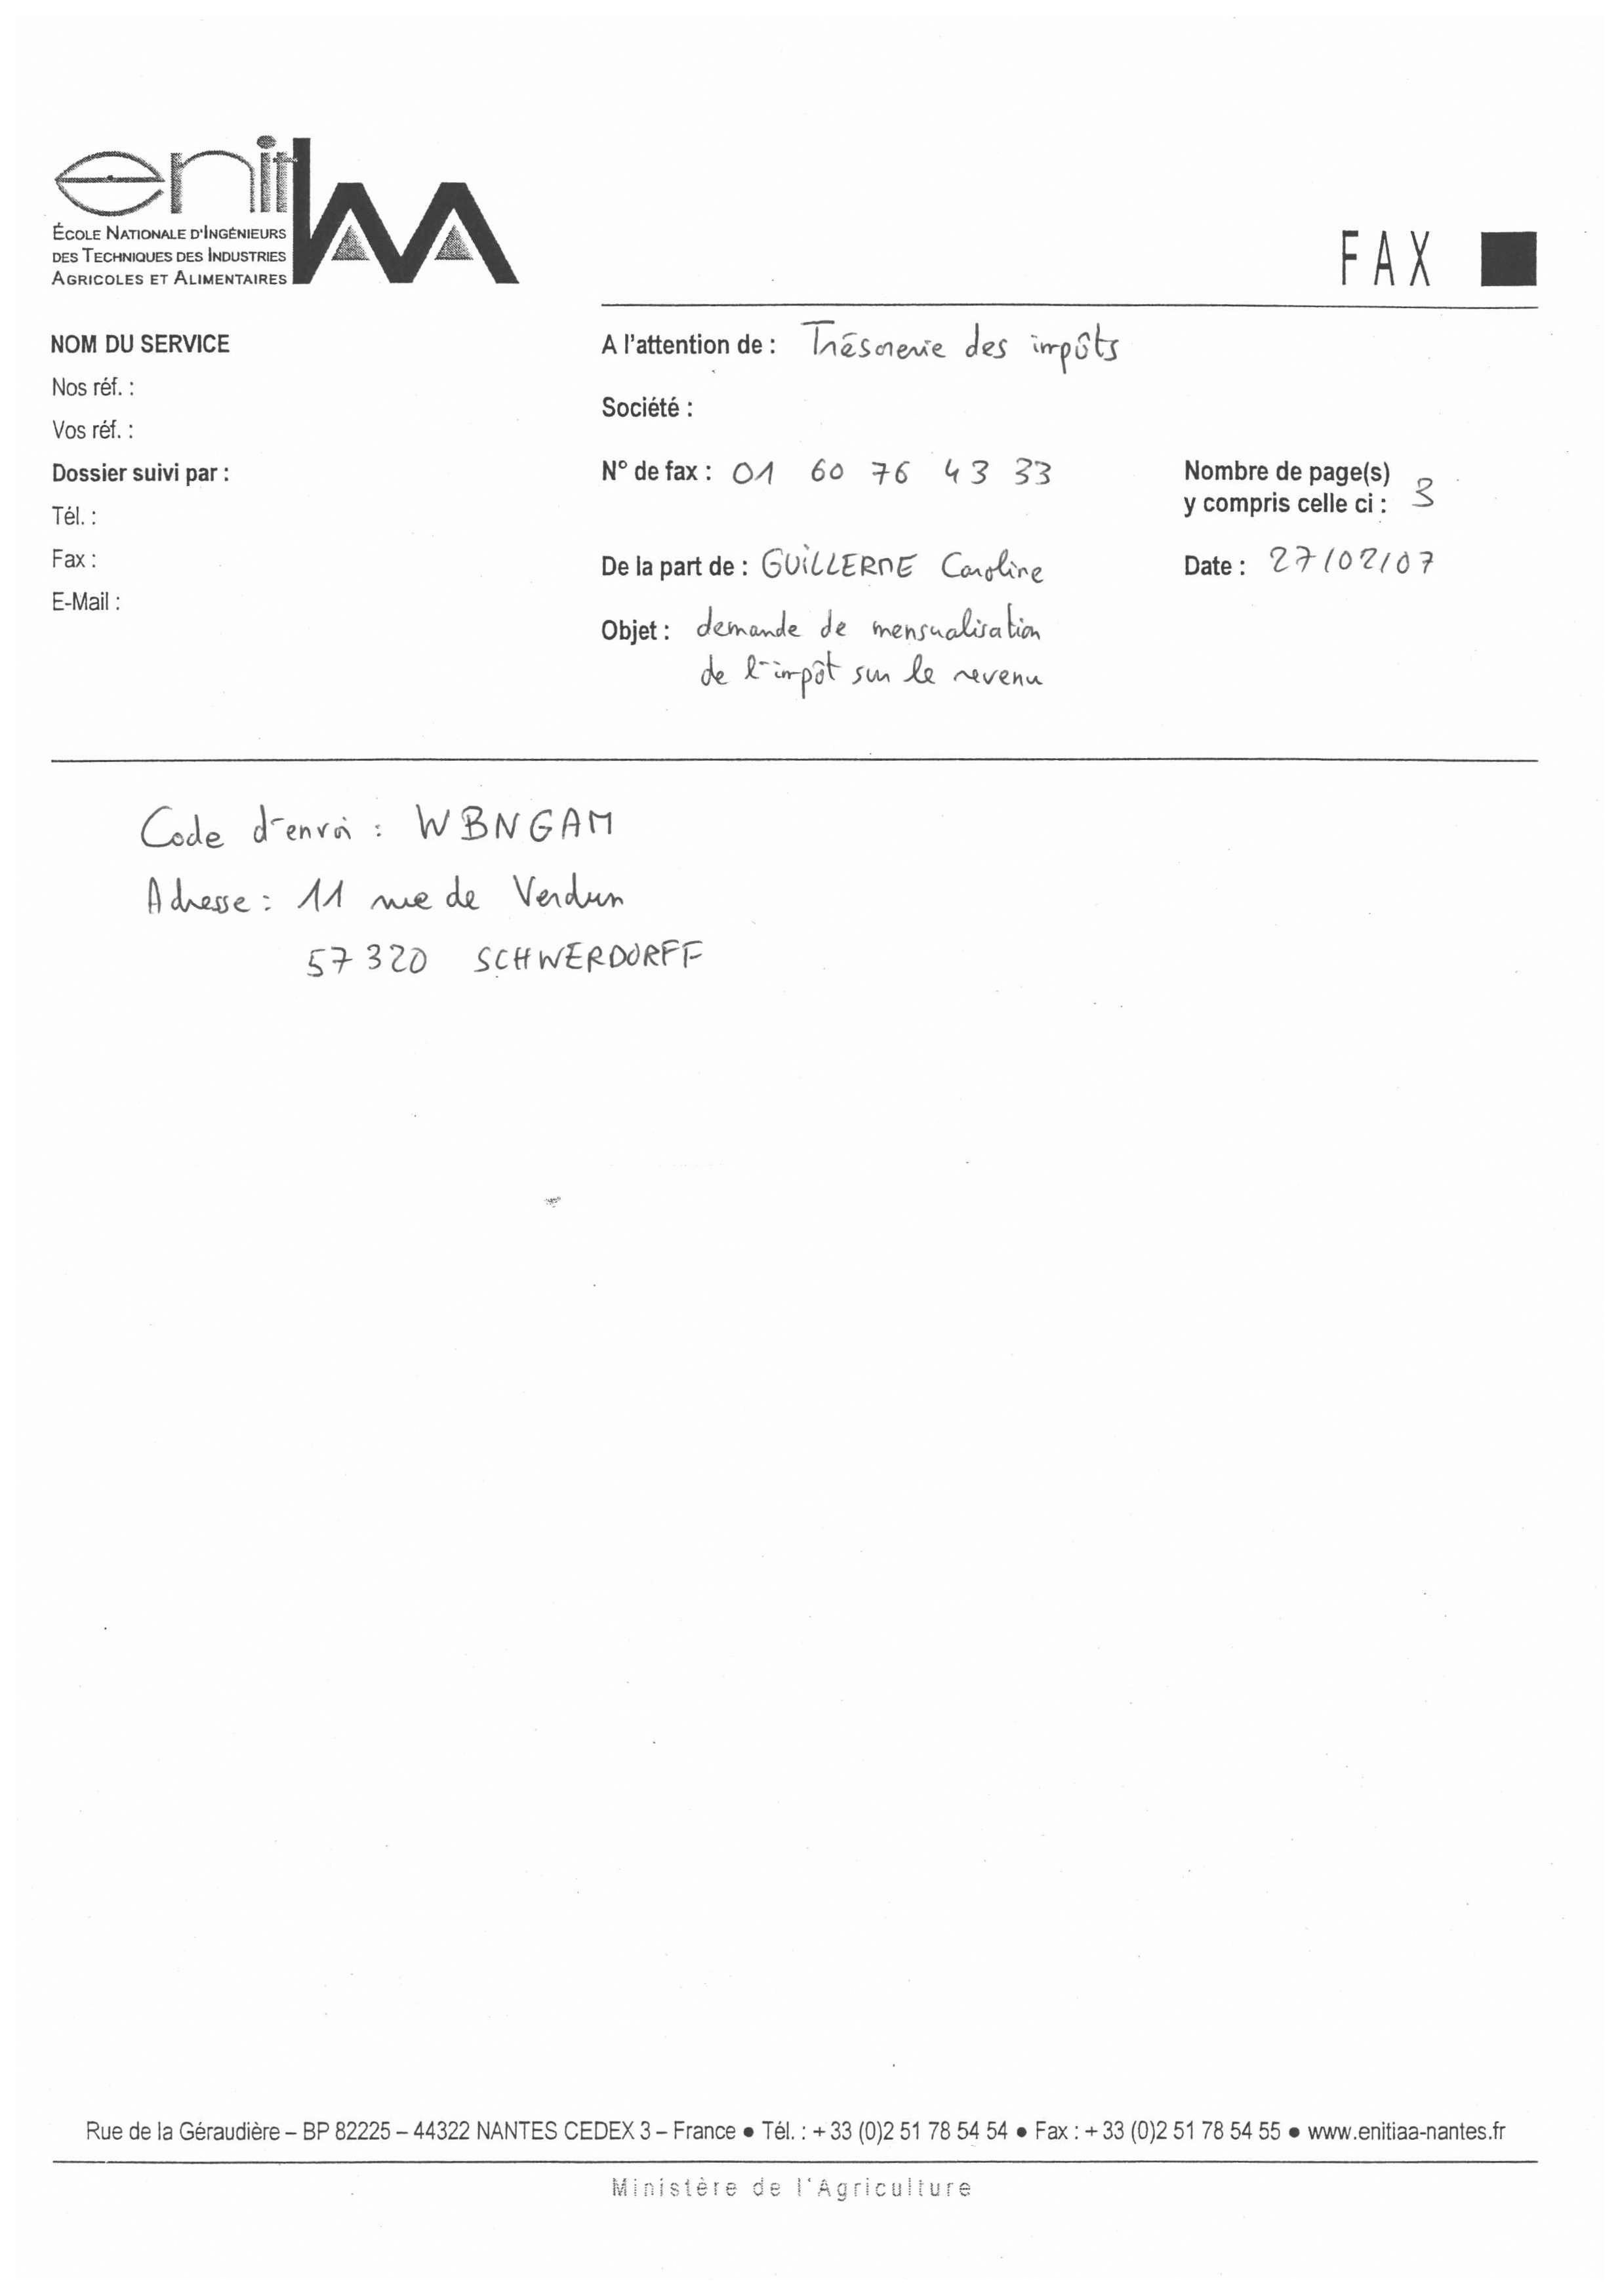 enitiaa
ÉCOLE NATIONALE D'INGÉNIEURS
DES TECHNIQUES DES INDUSTRIES
AGRICOLES ET ALIMENTAIRES
FAX
NOM DU SERVICE
Nos réf. :
Vos réf. :
Dossier suivi par :
Tél. :
Fax :
E-Mail :
A l'attention de : Trésorerie des impôts
Société :
N° de fax : 01 60 76 43 33
Nombre de page(s)
y compris celle ci : 3
De la part de : GUILLERME Caroline
Date : 27/02/07
Objet : demande de mensualisation
de l'impôt sur le revenu
Code d'envoi : WBNGAM
Adresse : 11 rue de Verdun
57320 SCHWERDORFF
Rue de la Géraudière – BP 82225 – 44322 NANTES CEDEX 3 – France ● Tél. : + 33 (0)2 51 78 54 54 ● Fax : + 33 (0)2 51 78 54 55 ● www.enitiaa-nantes.fr
Ministère de l'Agriculture